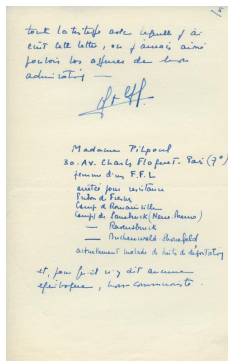 toute la tristesse avec laquelle j'ai
écrit cette lettre, où j'aurais aimé
pouvoir les assurer de mon
admiration —
Madame Pilpoul
30. Av. Charles Floquet. Paris (7e)
femme d'un F.F.L
arrêtée pour résistance
Prison de Fresnes
Camp de Romainville
Camps de Sarrebruck (Neue Bremm)
— Ravensbruck
— Buchenwald-
actuellement malade de suite de déportation
et, pour qu'il n'y ait aucune
équivoque, non communiste.